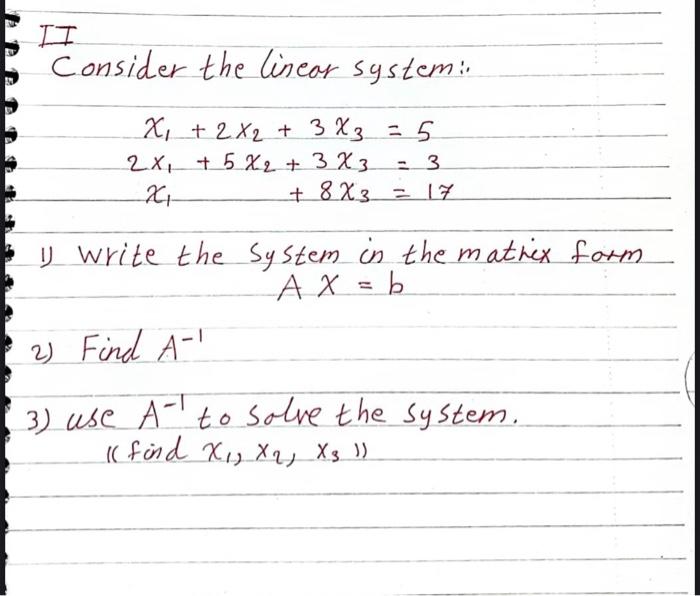 II
Consider the linear system:.
x₁ + 2x₂ + 3x₃ = 5
2x₁ + 5x₂ + 3x₃ = 3
x₁ + 8x₃ = 17
1) Write the System in the matrix form
A X = b
2) Find A⁻¹
3) use A⁻¹ to solve the system.
(( find x₁, x₂, x₃ ))